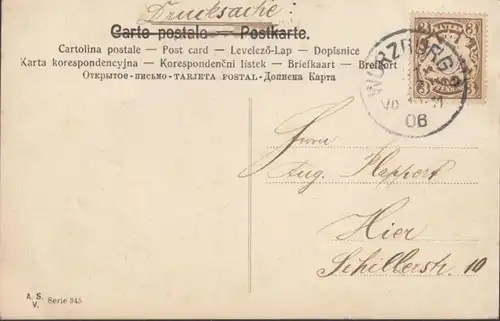 Drucksache:
Carte postale — Postkarte.
Cartolina postale — Post card — Levelező-Lap — Dopisnice
Karta korespondencyjna — Korespondenční lístek — Briefkaart — Brefkort
Открытое-письмо-TARJETA POSTAL-Дописна Карта
WÜRZBURG
06
3 3
3 PFENNIG 3
Herrn
Aug. Plappert
Hier
Schillerstr. 10
A. S.
V. Serie 545